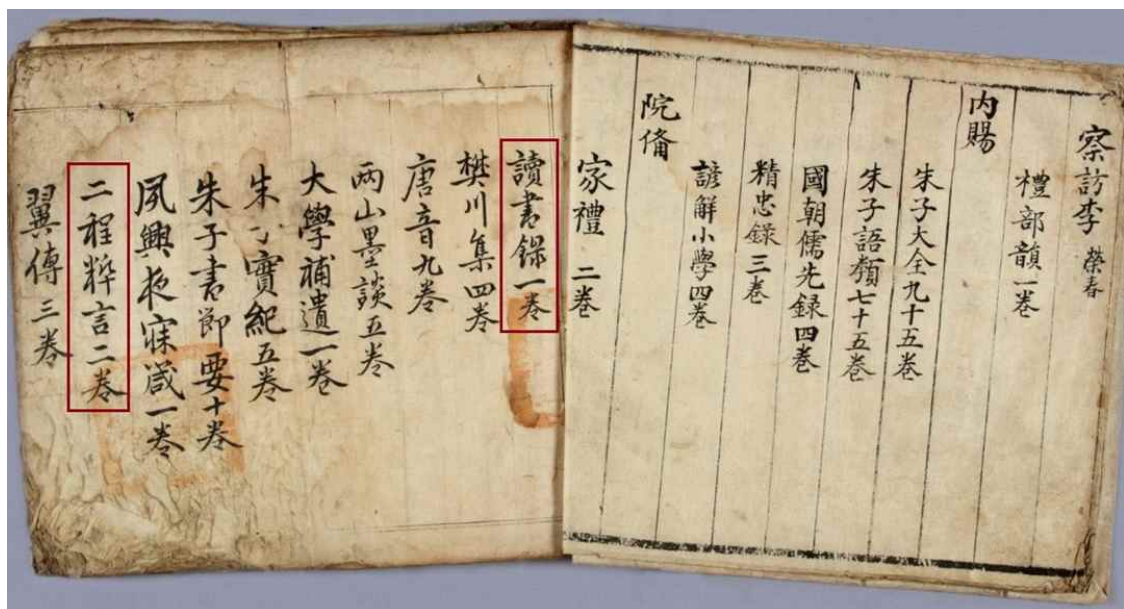 察訪李 榮春
禮部韻一卷
内賜
朱子大全九十五卷
朱子語類七十五卷
國朝儒先録四卷
精忠錄三卷
諺解小學四卷
院俻
家禮 二卷
讀書錄一卷
樊川集四卷
唐音九卷
兩山墨談五卷
大學補遺一卷
朱子實紀五卷
朱子書節要十卷
夙興夜寐箴一卷
二程粹言二卷
翼傳三卷